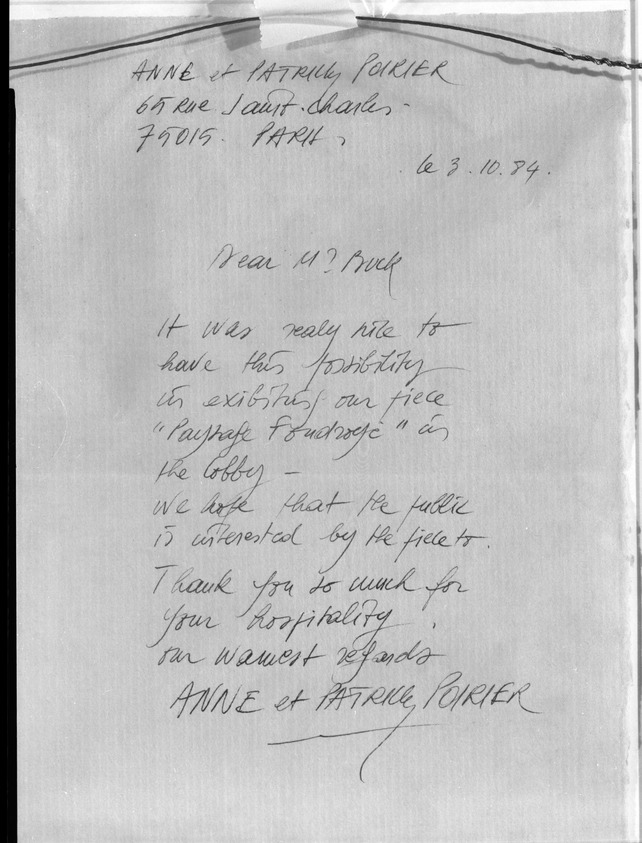 ANNE et PATRICK POIRIER
65 rue Saint-Charles -
75015. PARIS
le 3.10.84.
Dear Mr Bock
It was realy nice to
have this possibility
in exibiting our piece
"Paysage Foudroyé" in
the lobby -
We hope that the public
is interested by the piece to.
Thank you so much for
your hospitality.
our warmest regards
ANNE et PATRICK POIRIER